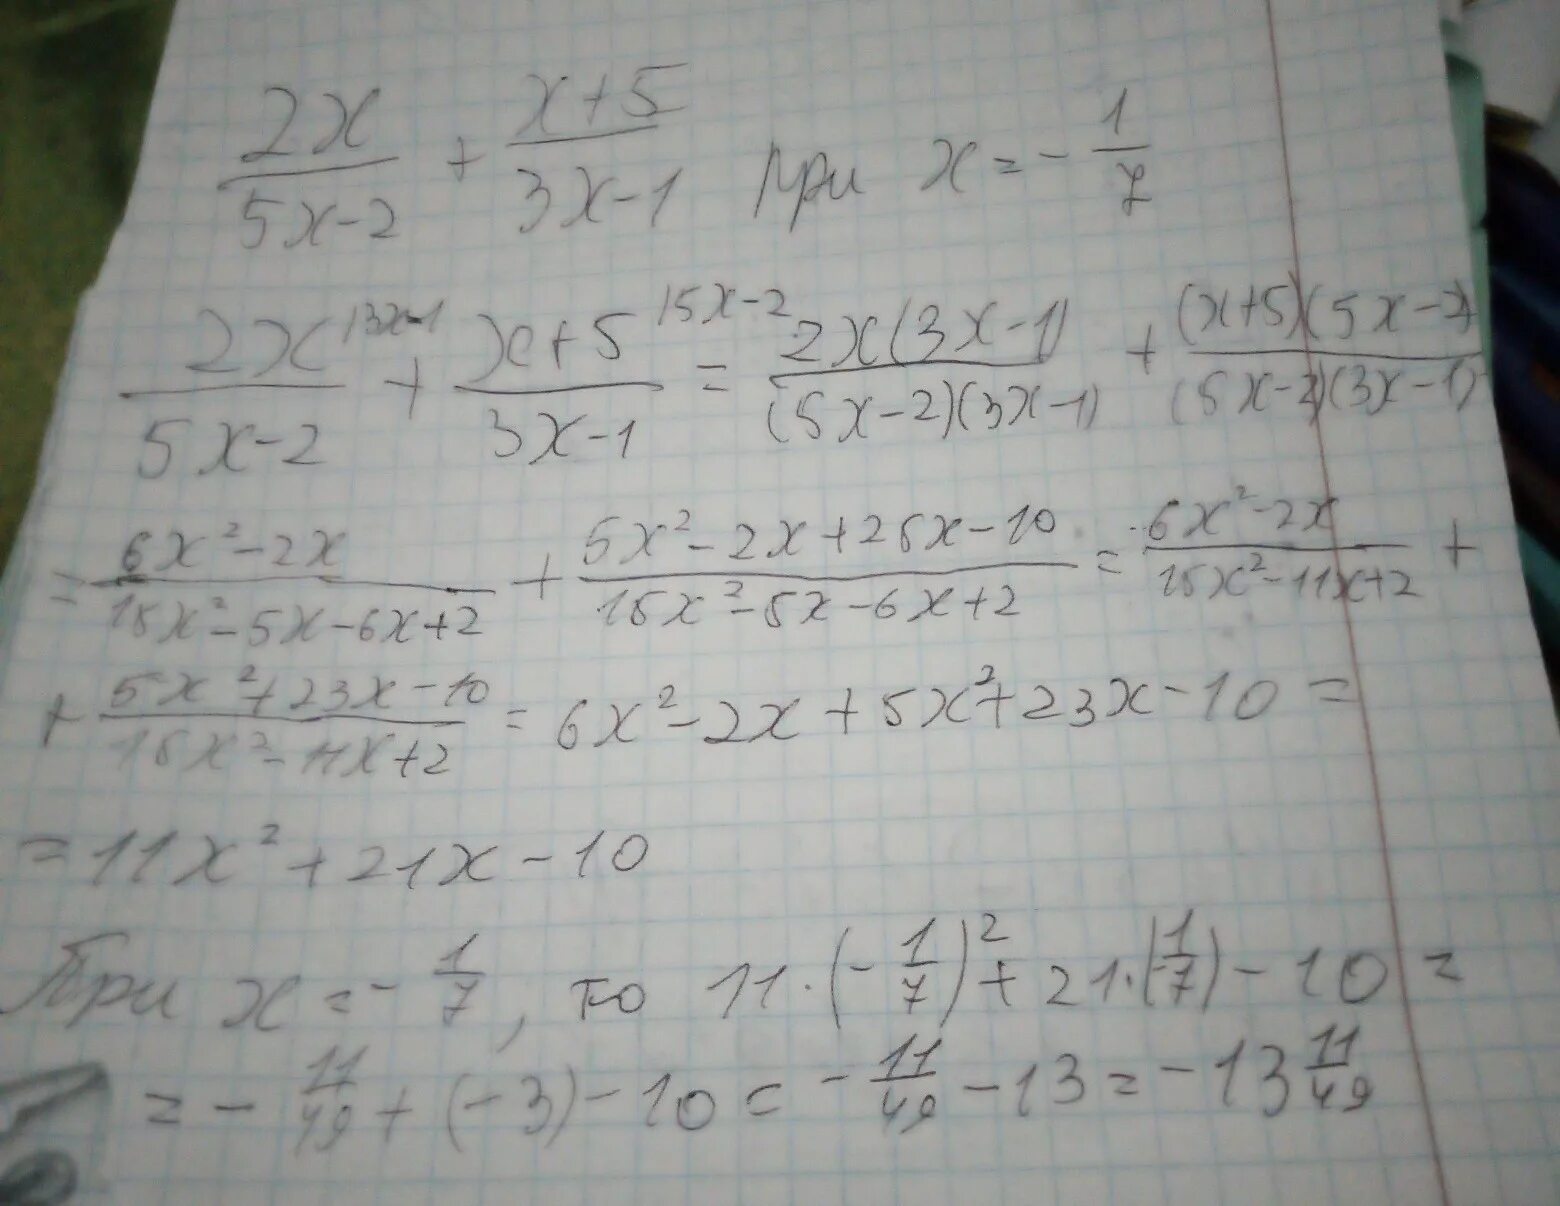 2x/(5x-2) + (x+5)/(3x-1) при x = -1/7
2x/(5x-2) |3x-1 + (x+5)/(3x-1) |5x-2 = 2x(3x-1)/((5x-2)(3x-1)) + (x+5)(5x-2)/((5x-2)(3x-1))
= (6x²-2x)/(15x²-5x-6x+2) + (5x²-2x+25x-10)/(15x²-5x-6x+2) = (6x²-2x)/(15x²-11x+2) +
+ (5x²+23x-10)/(15x²-11x+2) = 6x²-2x+5x²+23x-10 =
= 11x²+21x-10
При x = -1/7, то 11·(-1/7)²+21·(-1/7)-10 =
= -11/49+(-3)-10 = -11/49-13 = -13 11/49